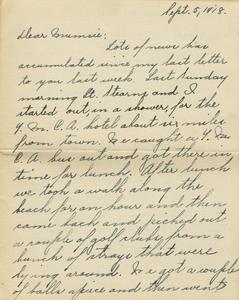 Sept. 5, 1918.
Dear Mumsie:
Lots of news has
accumulated since my last letter
to you last week. Last Sunday
morning Lt. Stearns and I
started out in a shower, for the
Y. M. C. A. hotel about six miles
from town. We caught a Y. M.
C. A. bus out and got there in
time for lunch. After lunch
we took a walk along the
beach for an hour and then
came back and picked out
a couple of golf clubs from a
bunch of strays that were
lying around. We got a couple
of balls apiece and then went